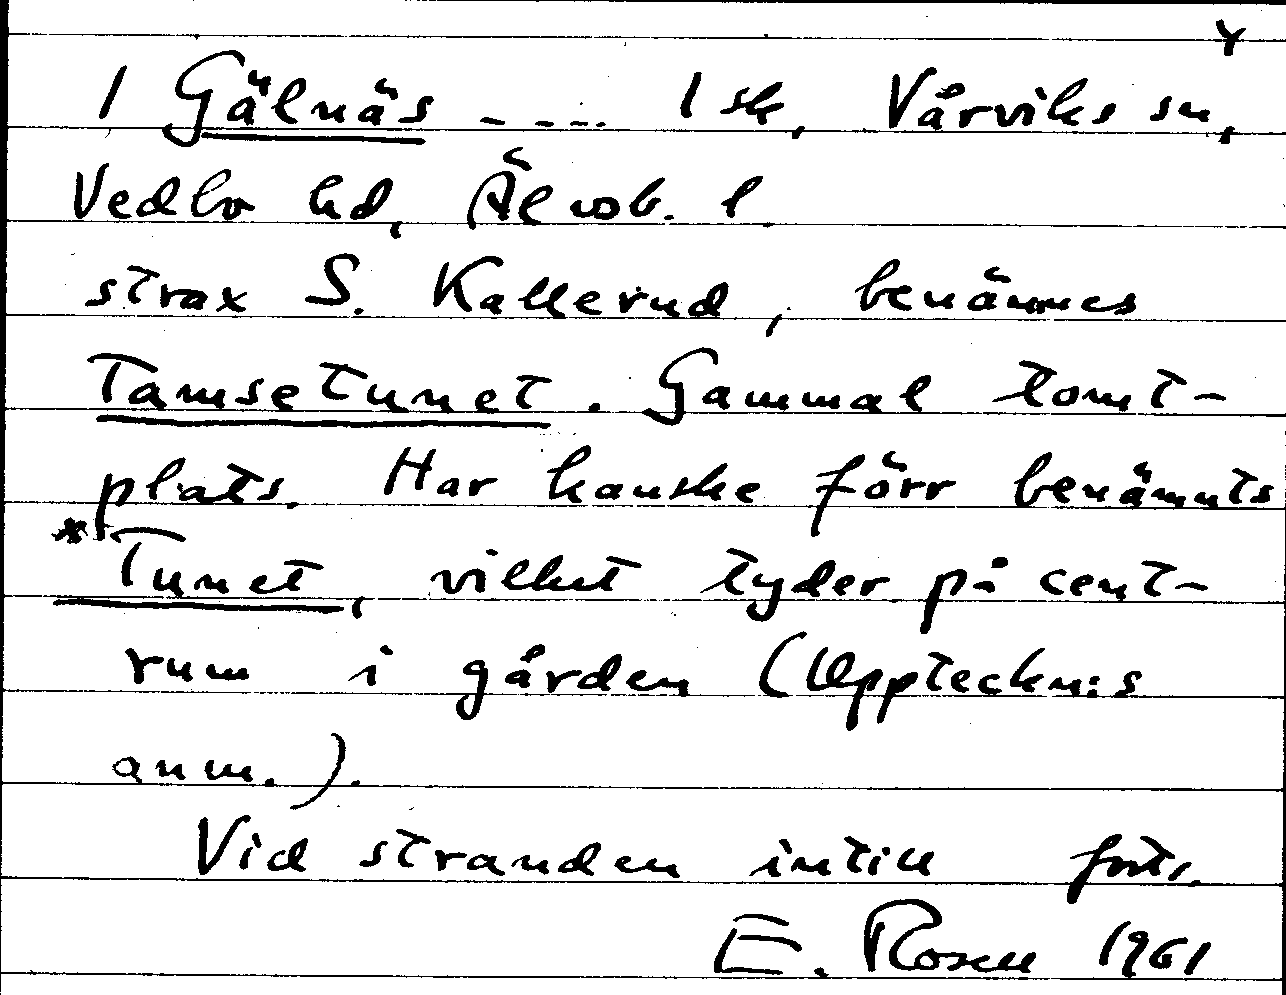 Y
1 Gälnäs ---. 1 sk, Vårviks sn,
Vedbo hd, Älvsb. l.
strax S. Kallerud, benämnes
Tamsetunet. Gammal tomt-
plats. Har kanske förr benämnts
*Tunet, vilket tyder på cent-
rum i gården (Uppteckn:s
anm.).
Vid stranden intill forts.
E. Rosén 1961